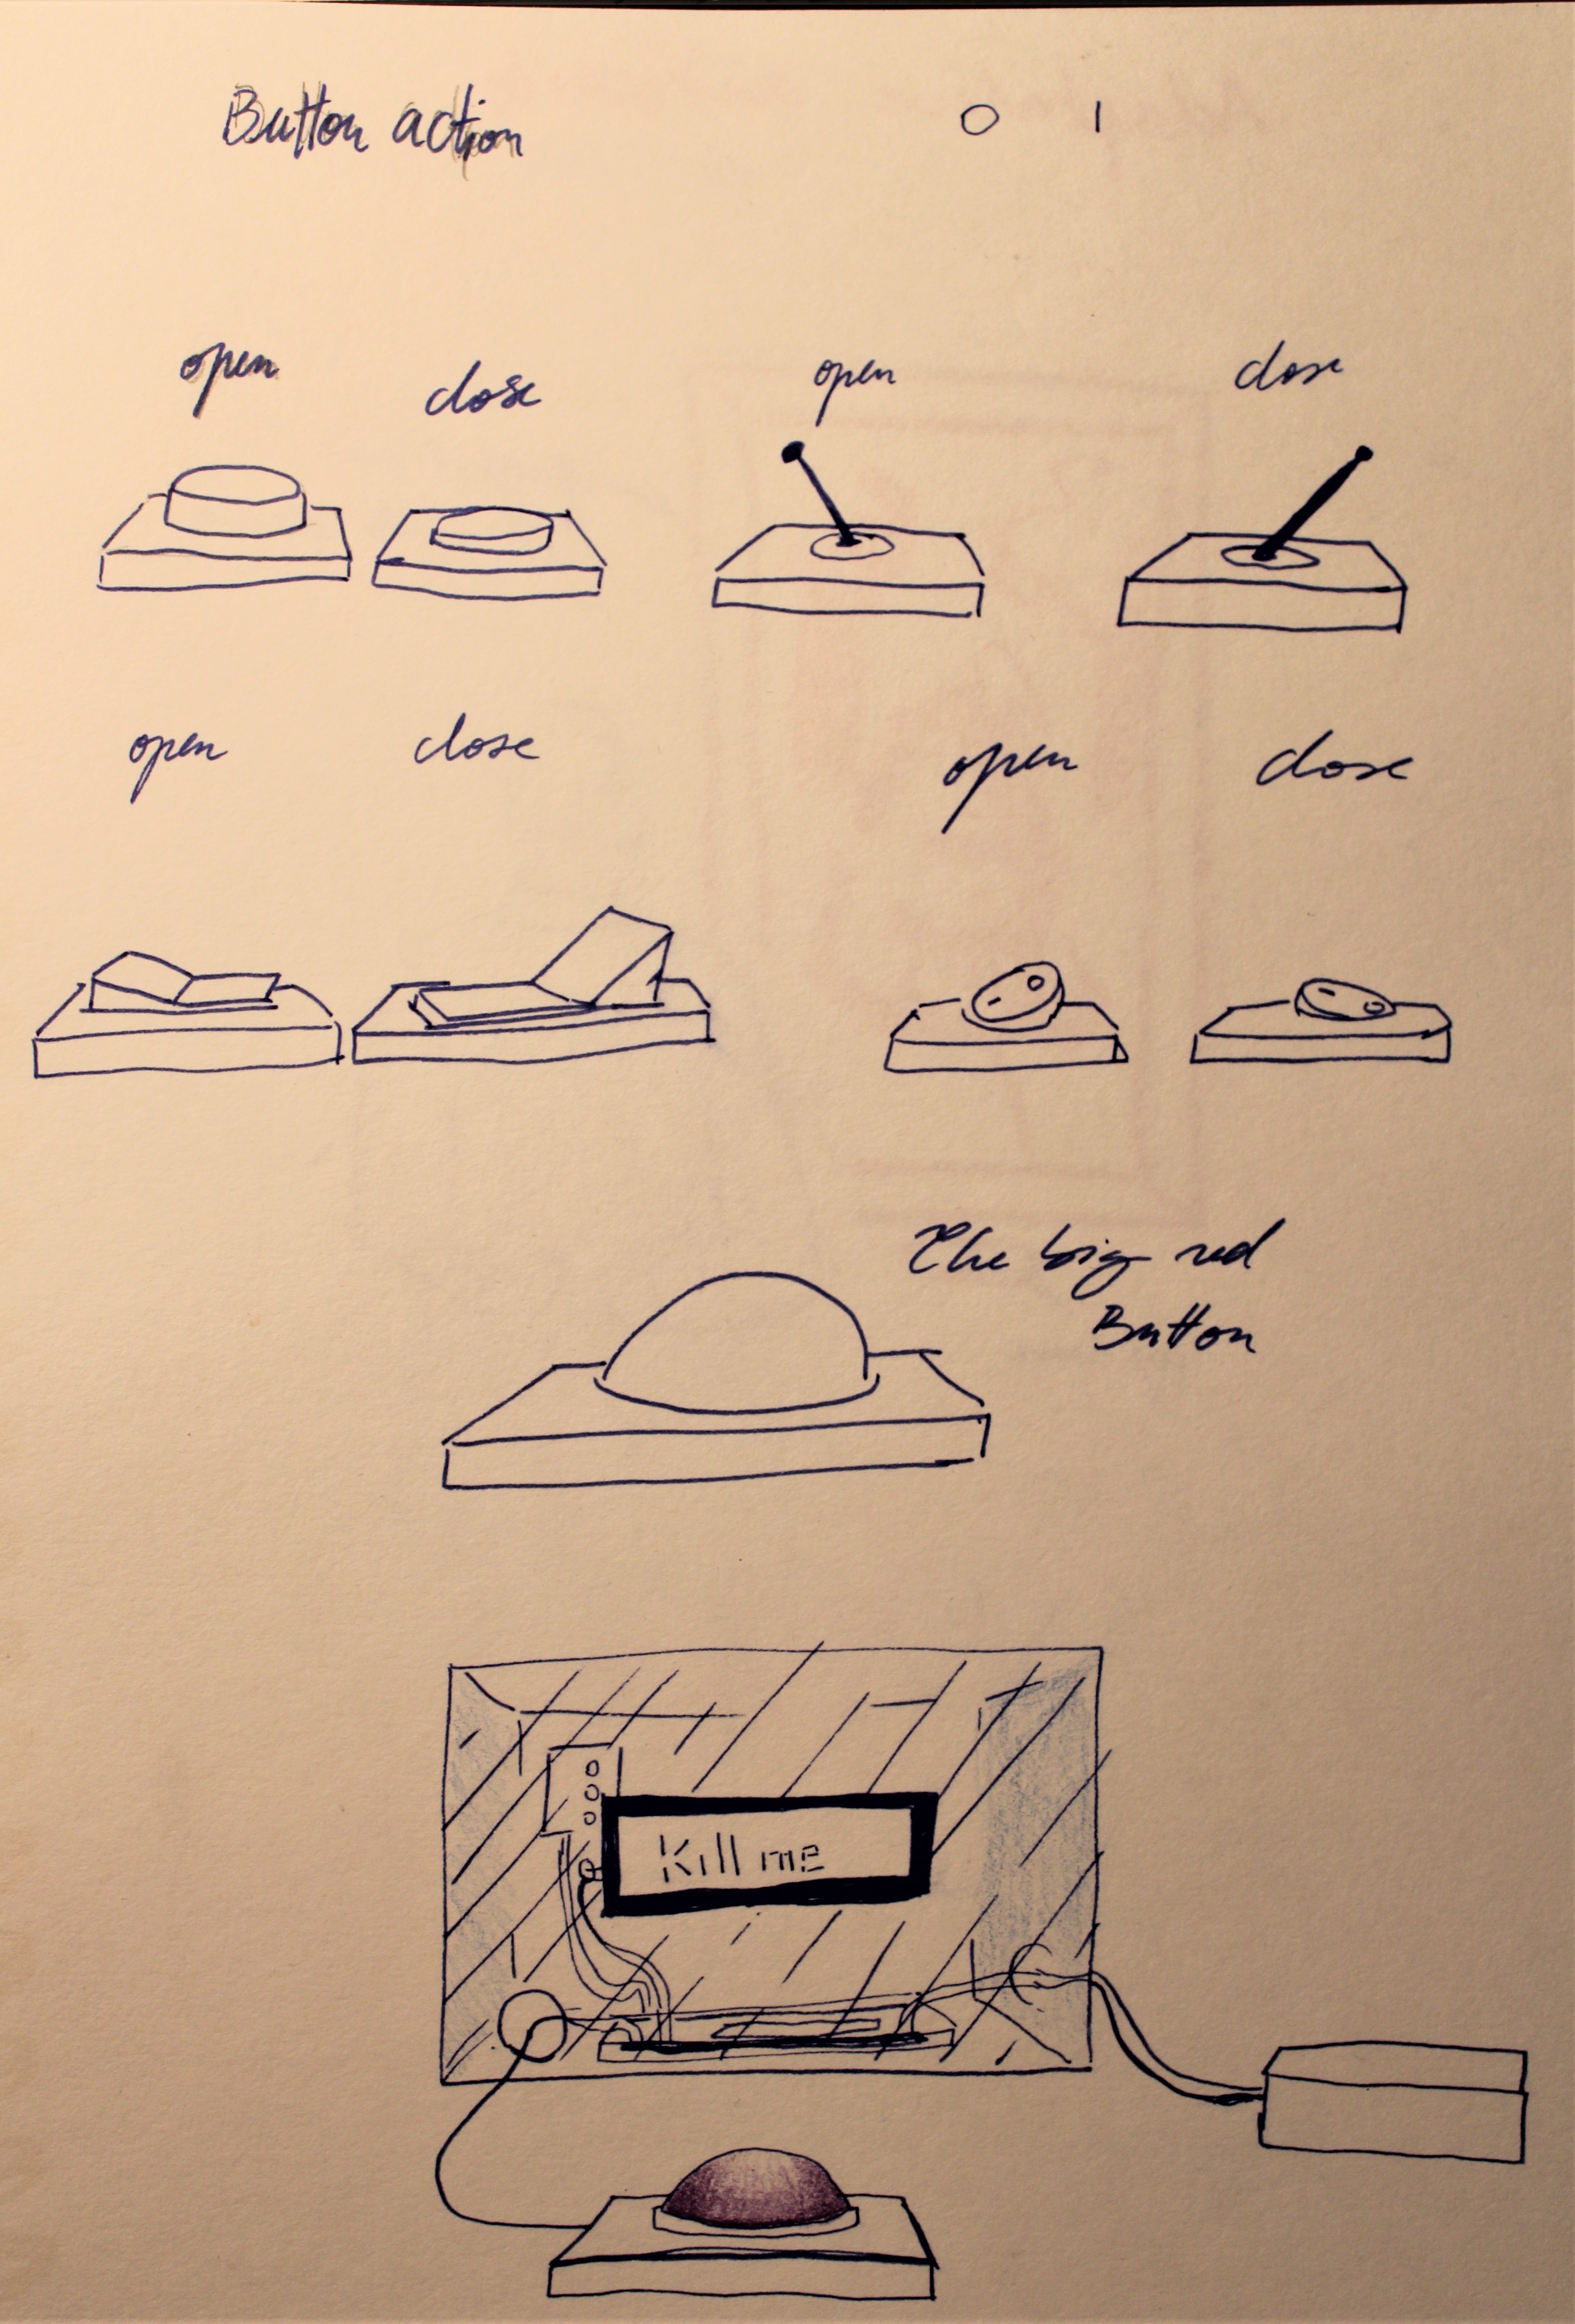 Button action
0 1
open close open close
open close open close
The big red
Button
Kill me